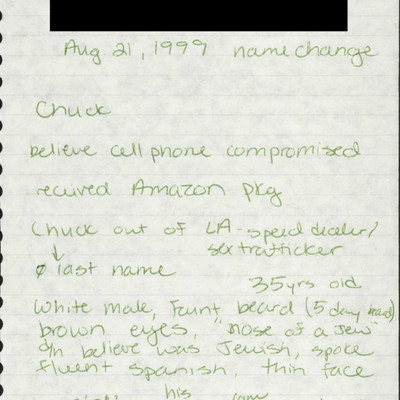 Aug 21, 1999 name change
Chuck
believe cell phone compromised
received Amazon pkg
Chuck out of LA - speed dealer/
sex trafficker
↓
∅ last name
35 yrs old
White male, faint beard (5 day beard)
brown eyes, "nose of a Jew"
d/n believe was Jewish, spoke
fluent spanish, thin face
his